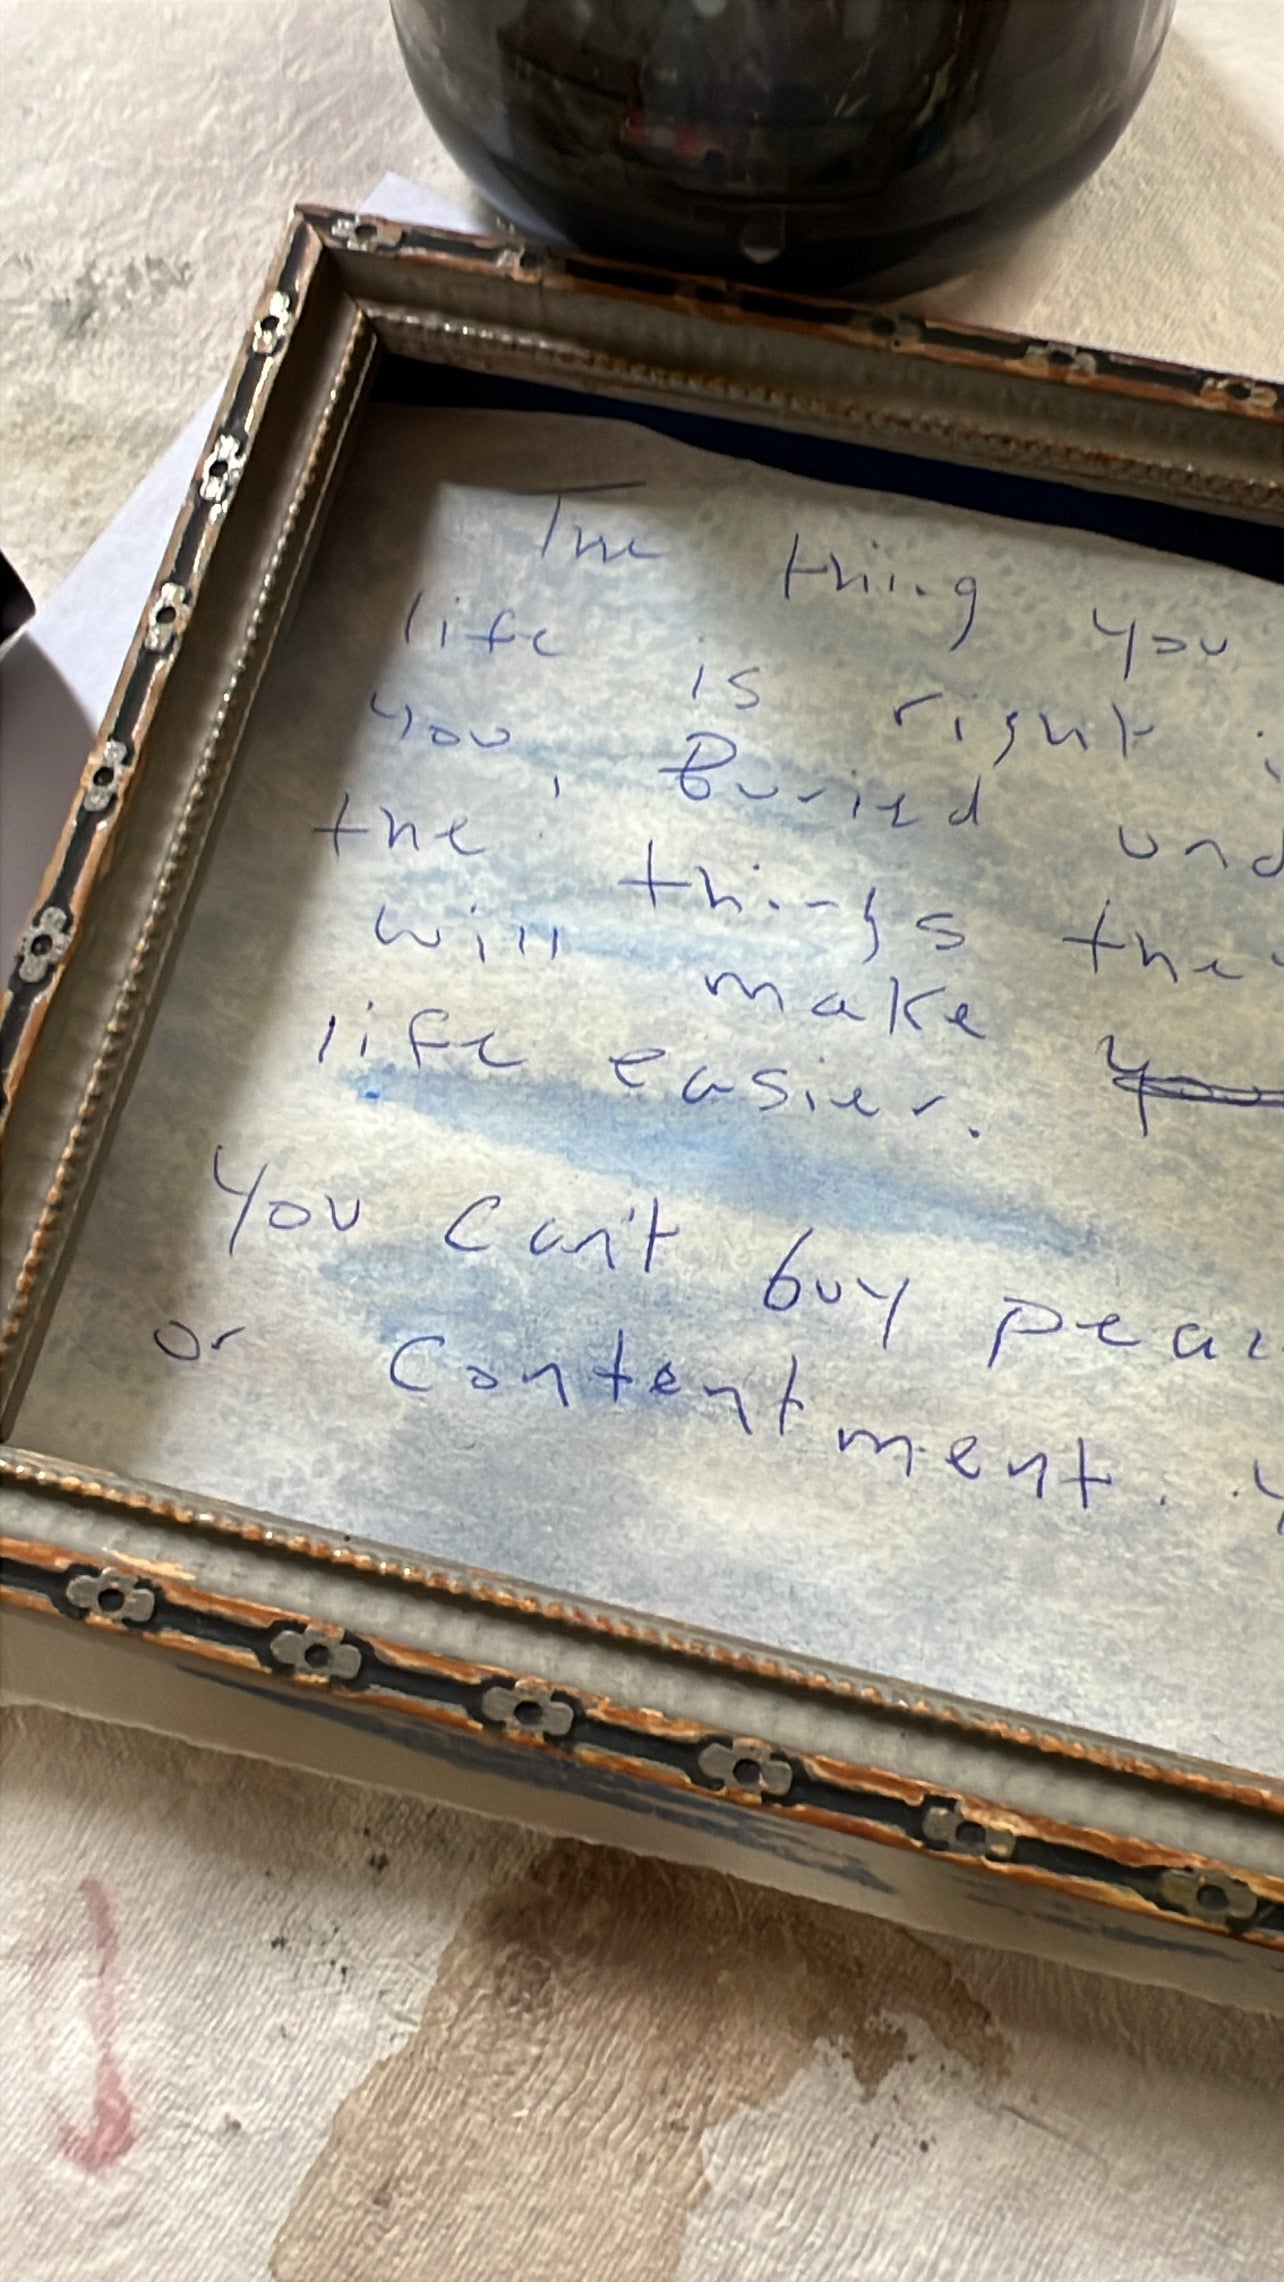 The thing you
life is right i
you, Buried und
the things the
will make you
life easier.
You can't buy peac
or contentment. Y